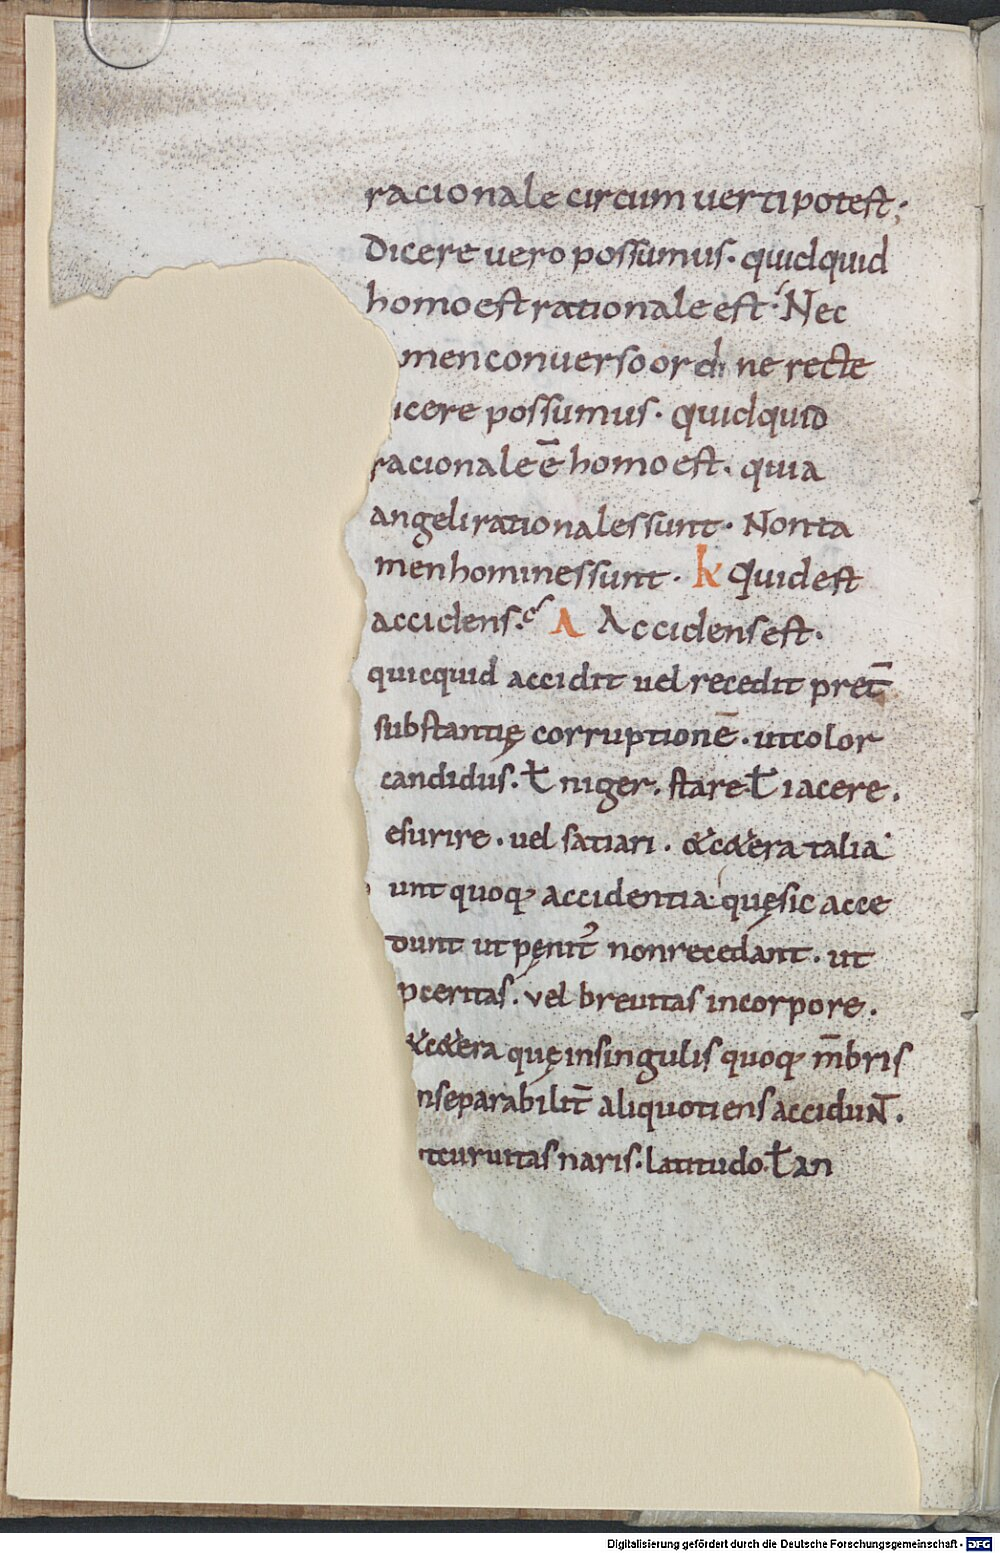 racionale circum uerti potest;
Dicere uero possumus· quidquid
homo est rationale est· Nec
men conuerso ordine recte
icere possumus· quidquid
racionale ē homo est· quia
angeli rationales sunt· Non ta
men homines sunt· K Quid est
accidens· A Accidens est·
quicquid accidit uel recedit pret̄
substantię corruptionē· ut color
candidus· ł niger· stare ł iacere·
esurire· uel satiari· & c&era talia·
unt quoq; accidentia· quę sic acce
dunt ut penit᷒ non recedant· ut
pceritas· vel breuitas in corpore·
& c&era quę in singulis quoq; m̄bris
nseparabilit̄ aliquotiens accidunt·
t curuitas naris· latitudo ł an
Digitalisierung gefördert durch die Deutsche Forschungsgemeinschaft - DFG